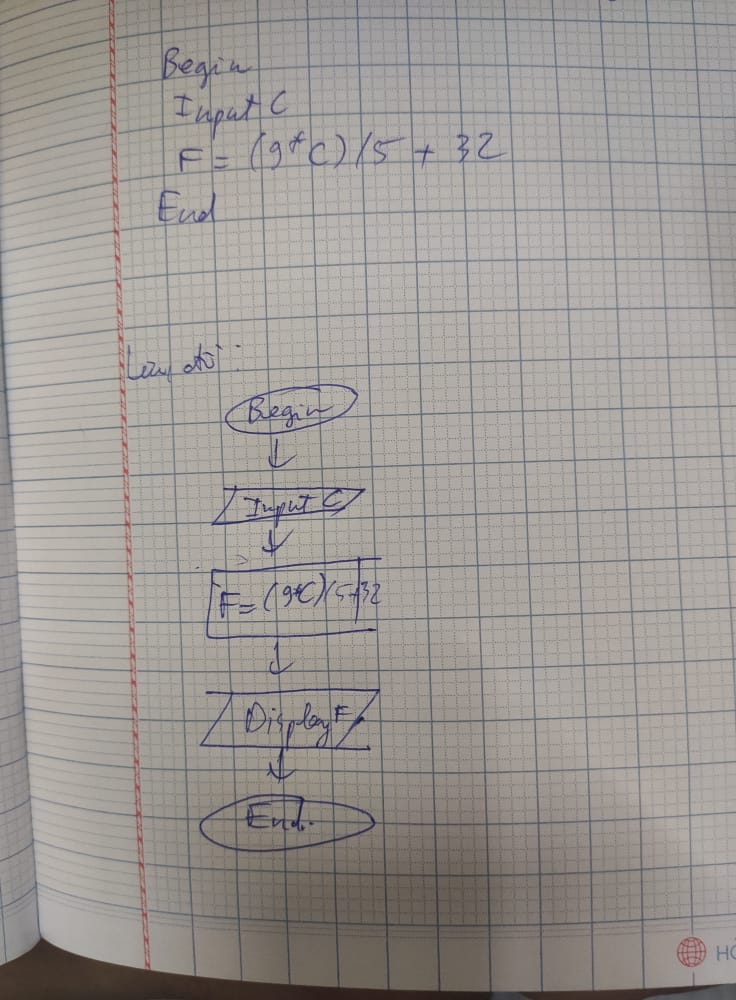 Begin
Input C
F = (9*C)/5 + 32
End
Lưu đồ:
Begin
Input C
F = (9*C)/5+32
Display F
End.
HỒ